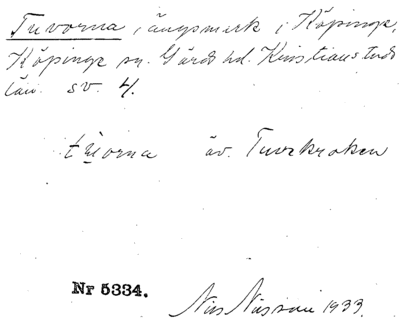 Tuvorna i ängsmark i Köpinge,
Köpinge sn. Gärds hd. Kristianstads
län. sv. 4.
tuorna äv. Tuvekroken
Nr 5334.
Nils Nilsson 1933